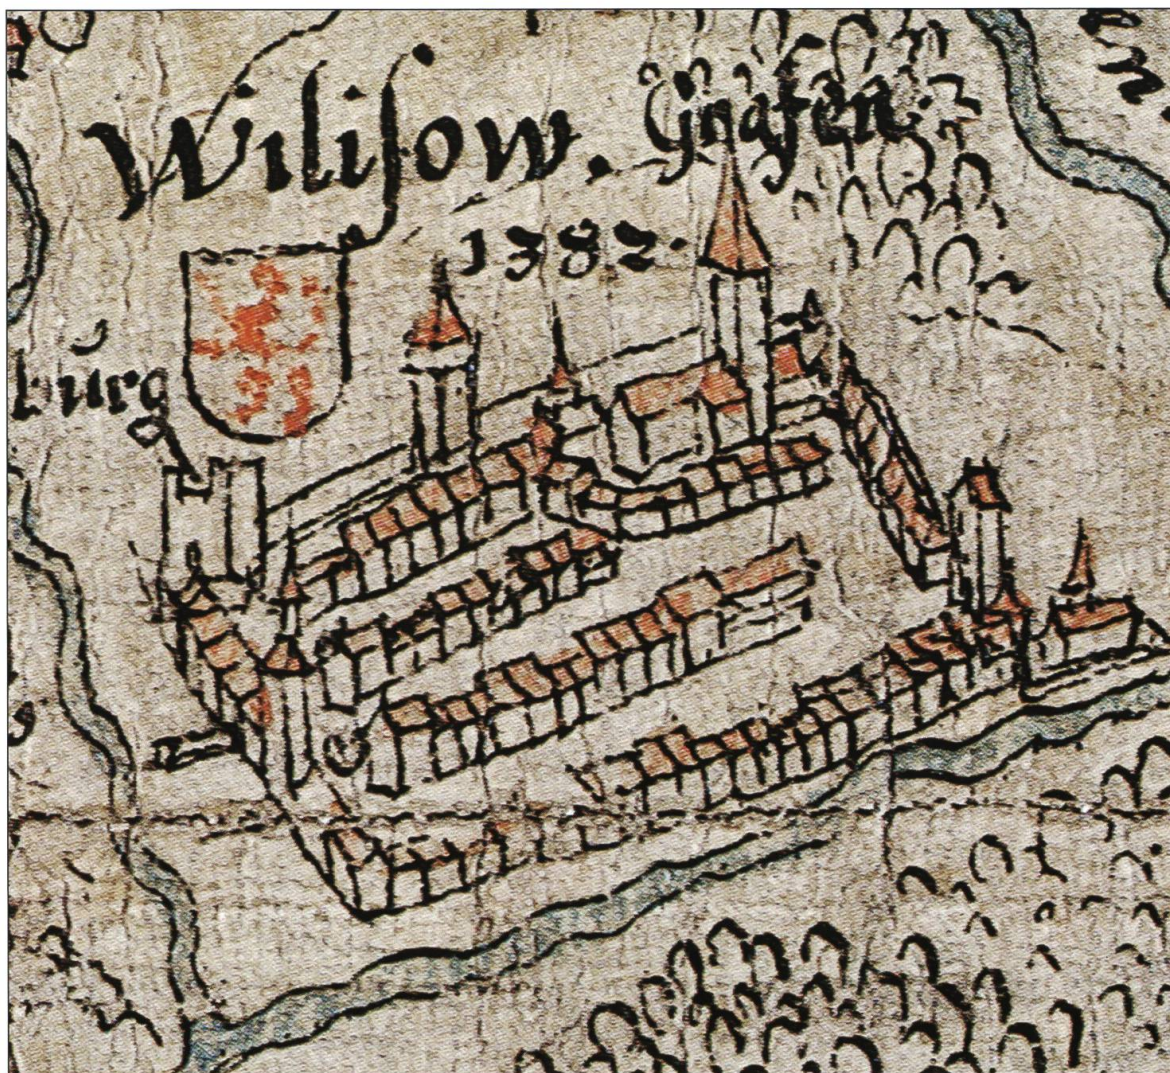 Wiliſow. Grafen
1382.
burg